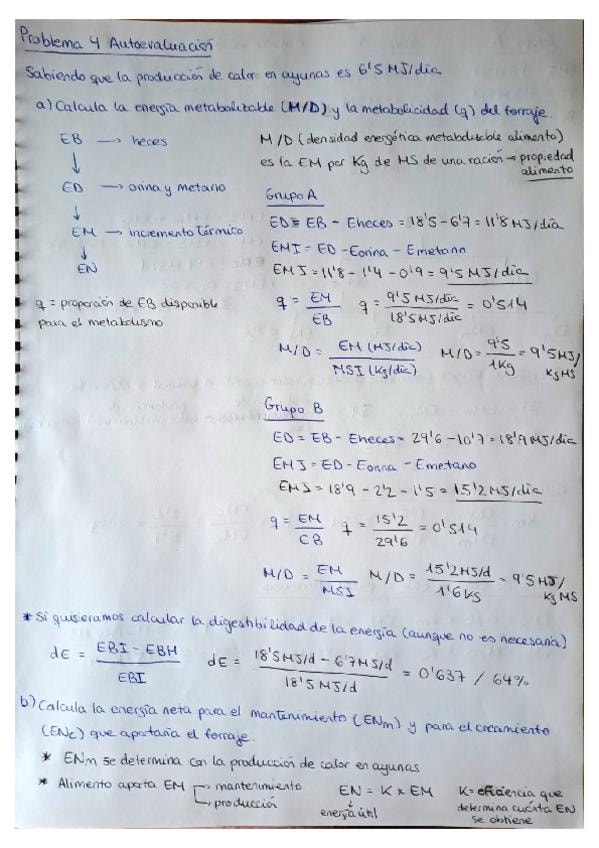 Problema 4 Autoevaluación
Sabiendo que la producción de calor en ayunas es 6'5 MJ/día
a) Calcula la energía metabolizable (M/D) y la metabolicidad (q) del forraje.
EB → heces
↓
ED → orina y metano
↓
EM → incremento térmico
↓
EN
q = proporción de EB disponible
para el metabolismo
M/D (densidad energética metabolizable alimento)
es la EM por Kg de MS de una ración → propiedad
alimento
Grupo A
ED = EB - Eheces = 18'5 - 6'7 = 11'8 MJ/día
EMI = ED - Eorina - Emetano
EMI = 11'8 - 1'4 - 0'9 = 9'5 MJ/día
q = EM/EB q = 9'5 MJ/día / 18'5 MJ/día = 0'514
M/D = EM (MJ/día) / MSI (Kg/día) M/D = 9'5 / 1Kg = 9'5 MJ/KgMS
Grupo B
ED = EB - Eheces = 29'6 - 10'7 = 18'9 MJ/día
EMI = ED - Eorina - Emetano
EMI = 18'9 - 2'2 - 1'5 = 15'2 MJ/día
q = EM/CB q = 15'2 / 29'6 = 0'514
M/D = EM/MSI M/D = 15'2 MJ/d / 1'6 KG = 9'5 MJ/KgMS
* Si quisieramos calcular la digestibilidad de la energía (aunque no es necesaria)
dE = EBI - EBH / EBI dE = 18'5 MJ/d - 6'7 MJ/d / 18'5 MJ/d = 0'637 / 64%
b) Calcula la energía neta para el mantenimiento (ENm) y para el crecimiento
(ENc) que aportaría el forraje.
* ENm se determina con la producción de calor en ayunas
* Alimento aporta EM → mantenimiento EN = K x EM K = eficiencia que
→ producción ↓ determina cuánta EN
energía útil se obtiene